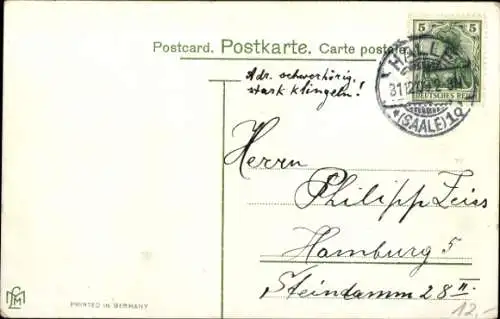 Postcard. Postkarte. Carte postale
5 5
DEUTSCHES REICH
HALLE
31.12.09.2-3N
*(SAALE)1c
Adr. schwerhörig,
stark klingeln!
Herrn
Philipp Zeiss
Hamburg 5
Steindamm 28 II.
12,-
PRINTED IN GERMANY